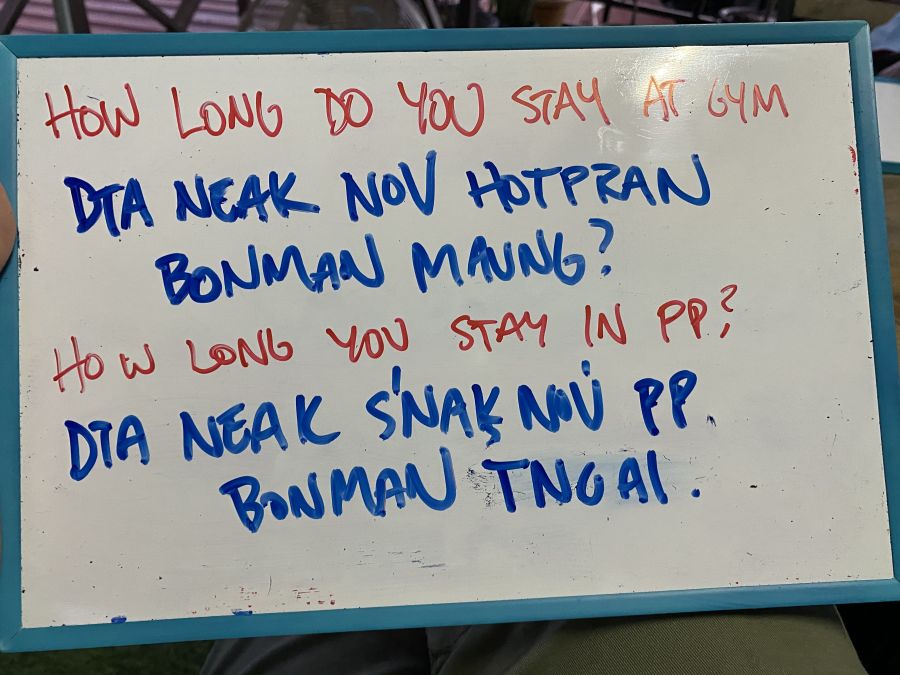 HOW LONG DO YOU STAY AT GYM
DTA NEAK NOV HOTPRAN
BONMAN MAUNG?
HOW LONG YOU STAY IN PP?
DTA NEAK S'NAK NOV PP.
BONMAN TNGAI.